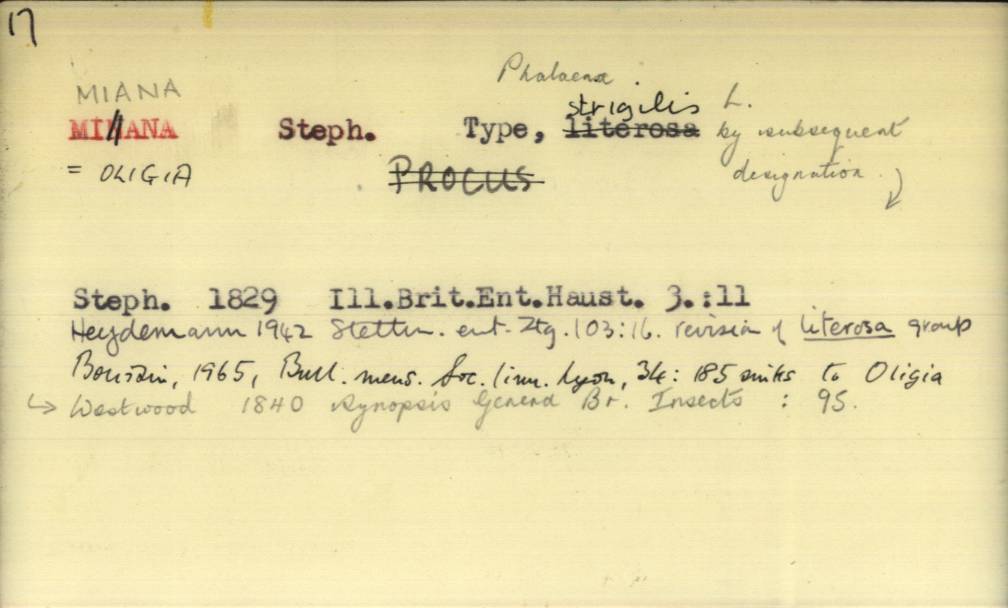 17
Phalaena.
MIANA strigilis L.
MIANA Steph. Type, literosa by subsequent
= OLIGIA PROCUS designation.
Steph. 1829 Ill.Brit.Ent.Haust. 3.:11
Heydemann 1942 Stettin. ent. Ztg. 103:16. revision of literosa group
Boursin, 1965, Bull. mens. Soc. linn. Lyon, 34: 185 sinks to Oligia
↳ Westwood 1840 Synopsis Genera Br. Insects : 95.